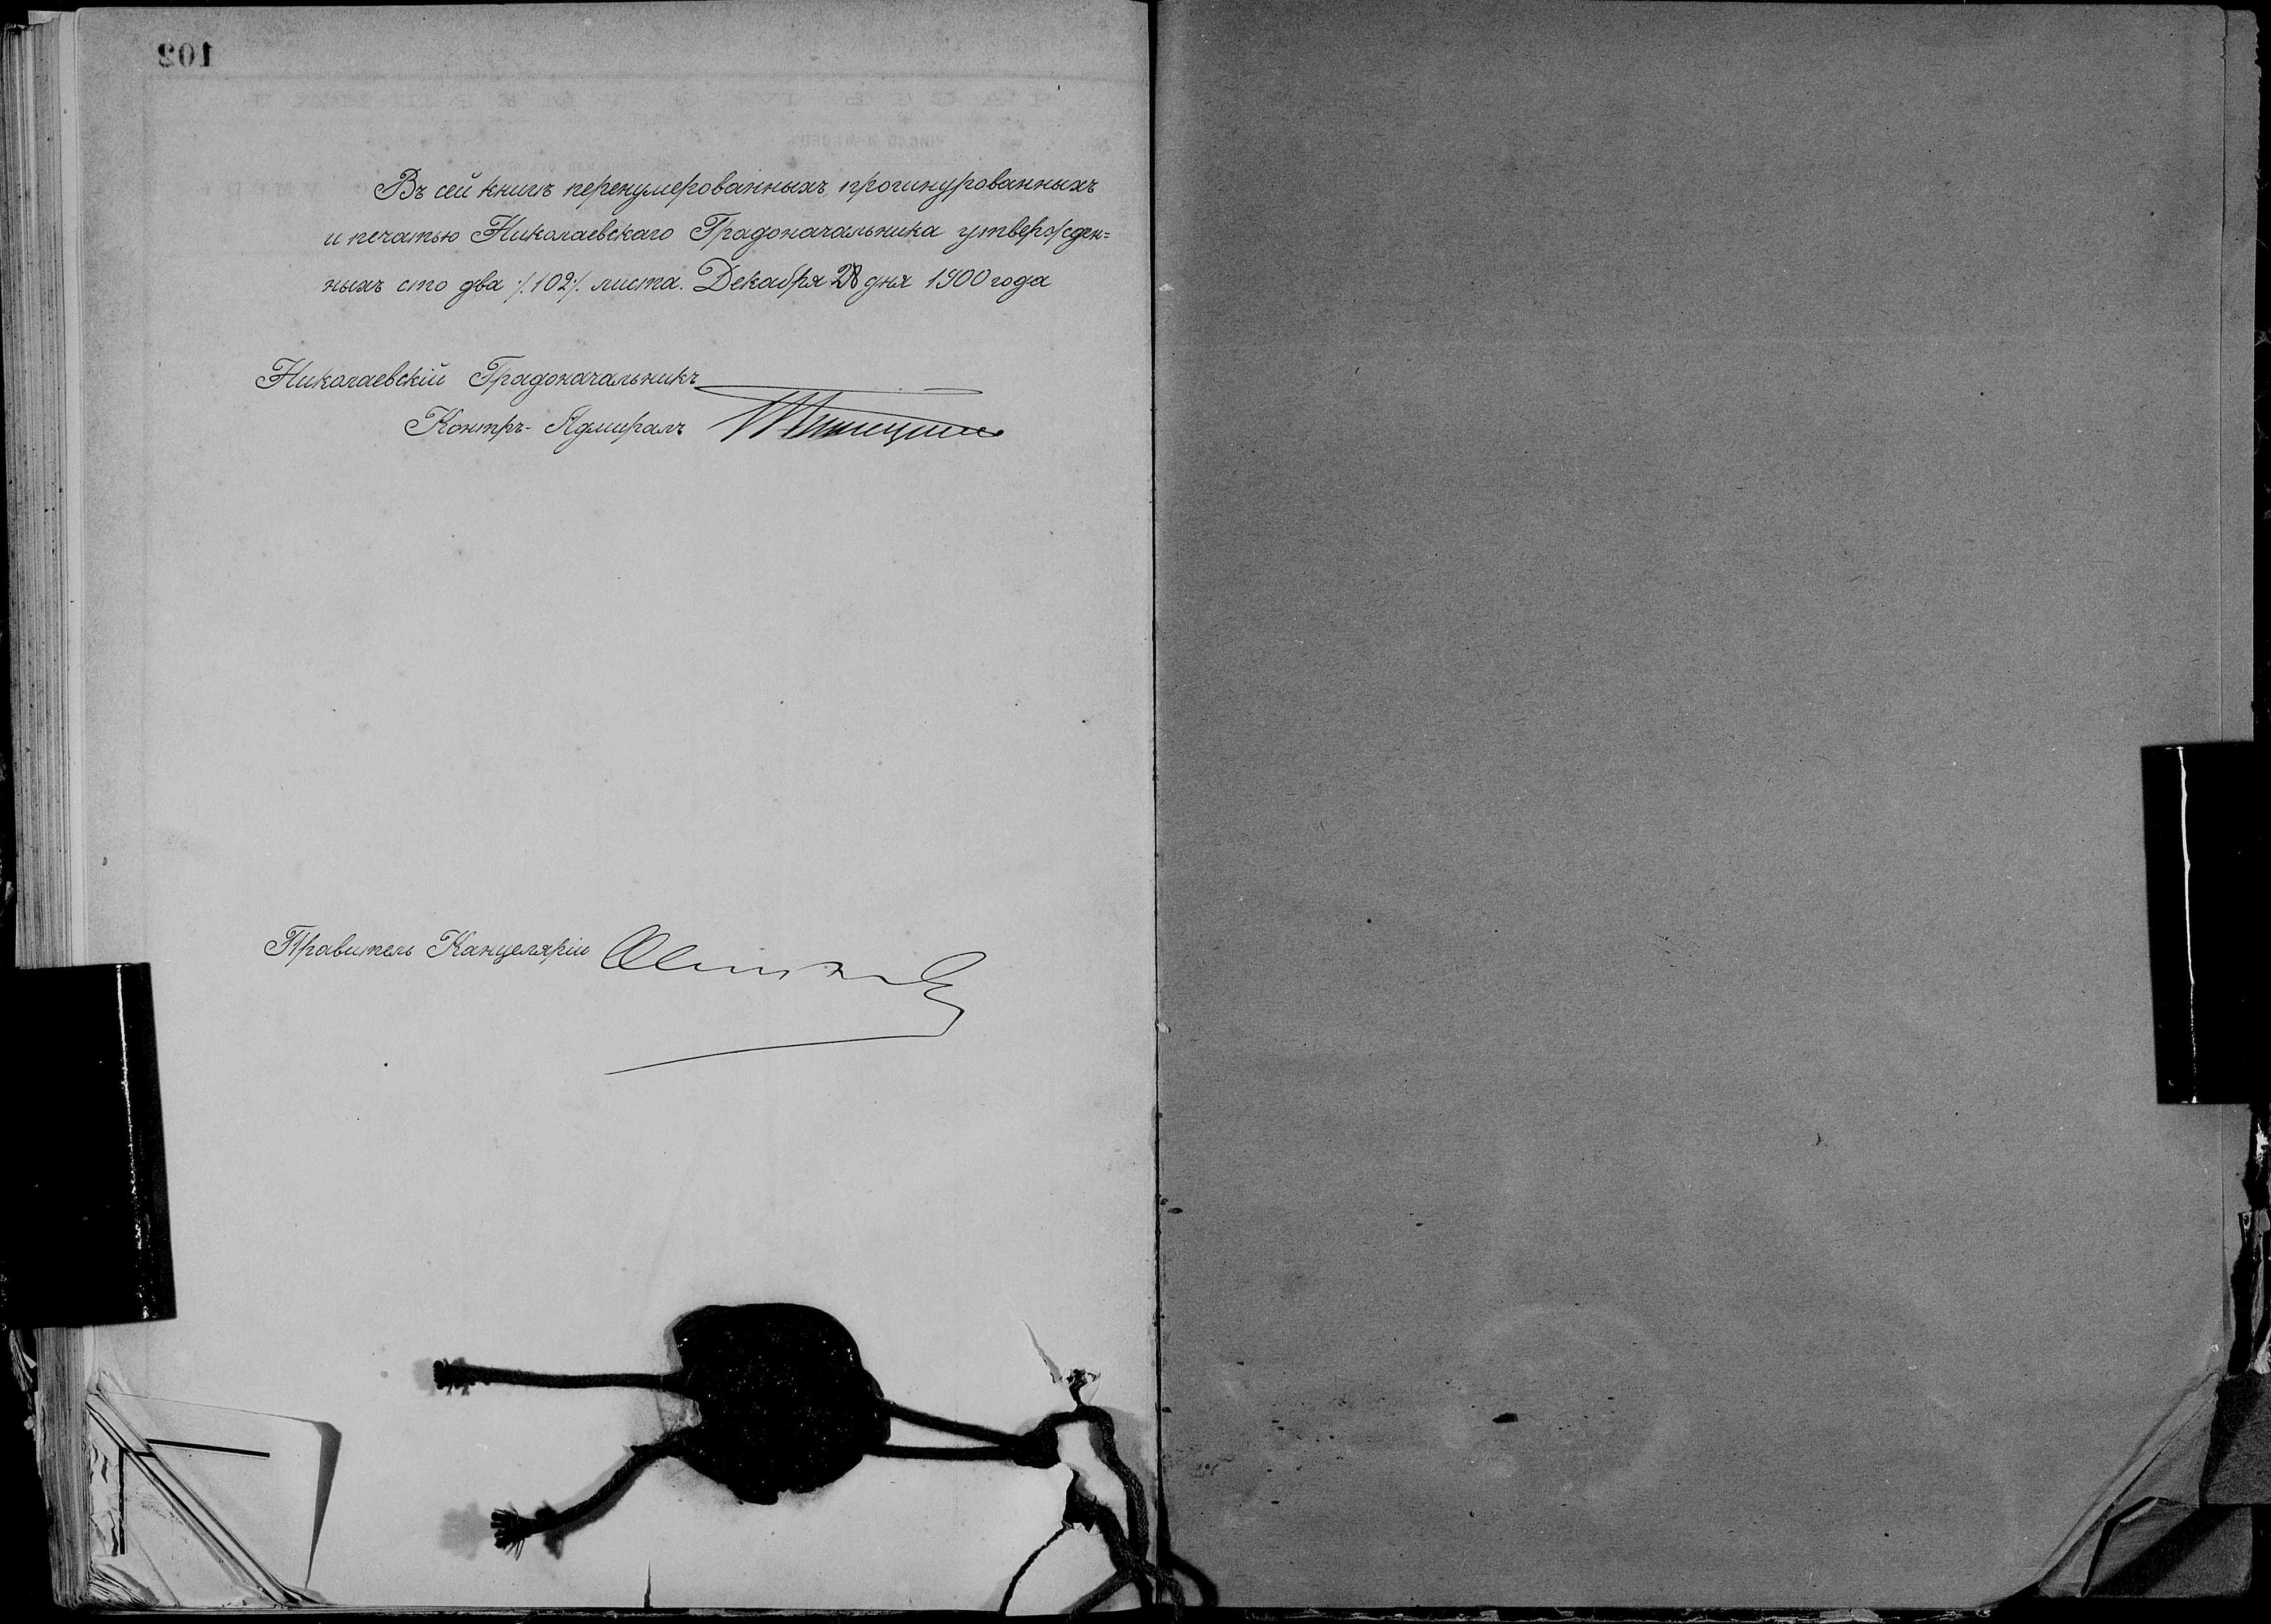 102
Въ сей книгѣ перенумерованныхъ, прошнурованныхъ
и печатью Николаевскаго Градоначальника утвержден=
ныхъ сто два /.102/. листа. Декабря 28 дня 1900 года
Николаевскій Градоначальникъ
Контръ-Адмиралъ
Правитель Канцеляріи